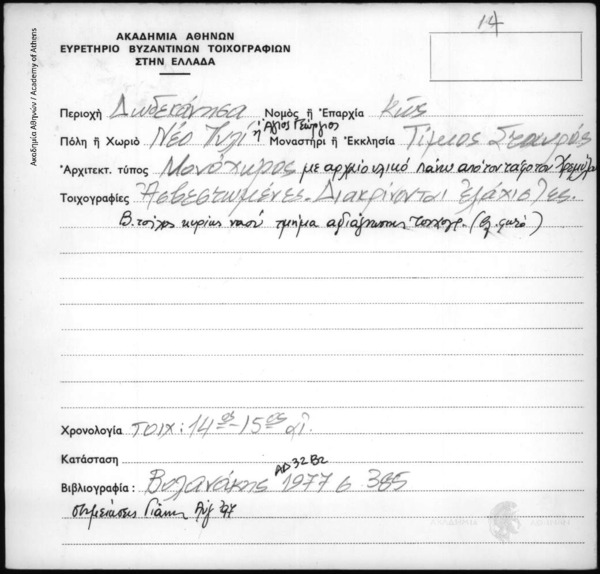 14
ΑΚΑΔΗΜΙΑ ΑΘΗΝΩΝ
ΕΥΡΕΤΗΡΙΟ ΒΥΖΑΝΤΙΝΩΝ ΤΟΙΧΟΓΡΑΦΙΩΝ
ΣΤΗΝ ΕΛΛΑΔΑ
Ακαδημία Αθηνών / Academy of Athens
Περιοχή Δωδεκάνησα Νομός ἤ Ἐπαρχία Κῶς
ἤ Ἅγιος Γεώργιος
Πόλη ἤ Χωριό Νέο Πυλί Μοναστήρι ἤ Ἐκκλησία Τίμιος Σταυρός
Ἀρχιτεκτ. τύπος Μονόχωρος με αρχαίο υλικό πάνω από τον τάφο του Χαρμύλου
Τοιχογραφίες Ἀσβεστωμένες. Διακρίνονται ἐλάχιστες.
Β. τοίχος κυρίως ναού τμήμα αδιάγνωστης τοιχογρ. (βλ. φωτό)
Χρονολογία τοιχ: 14ος-15ος αἰ.
Κατάσταση
ΑΔ 32 Β2
Βιβλιογραφία: Βολανάκης 1977 σ 385
Γιάννη Αύγ 97